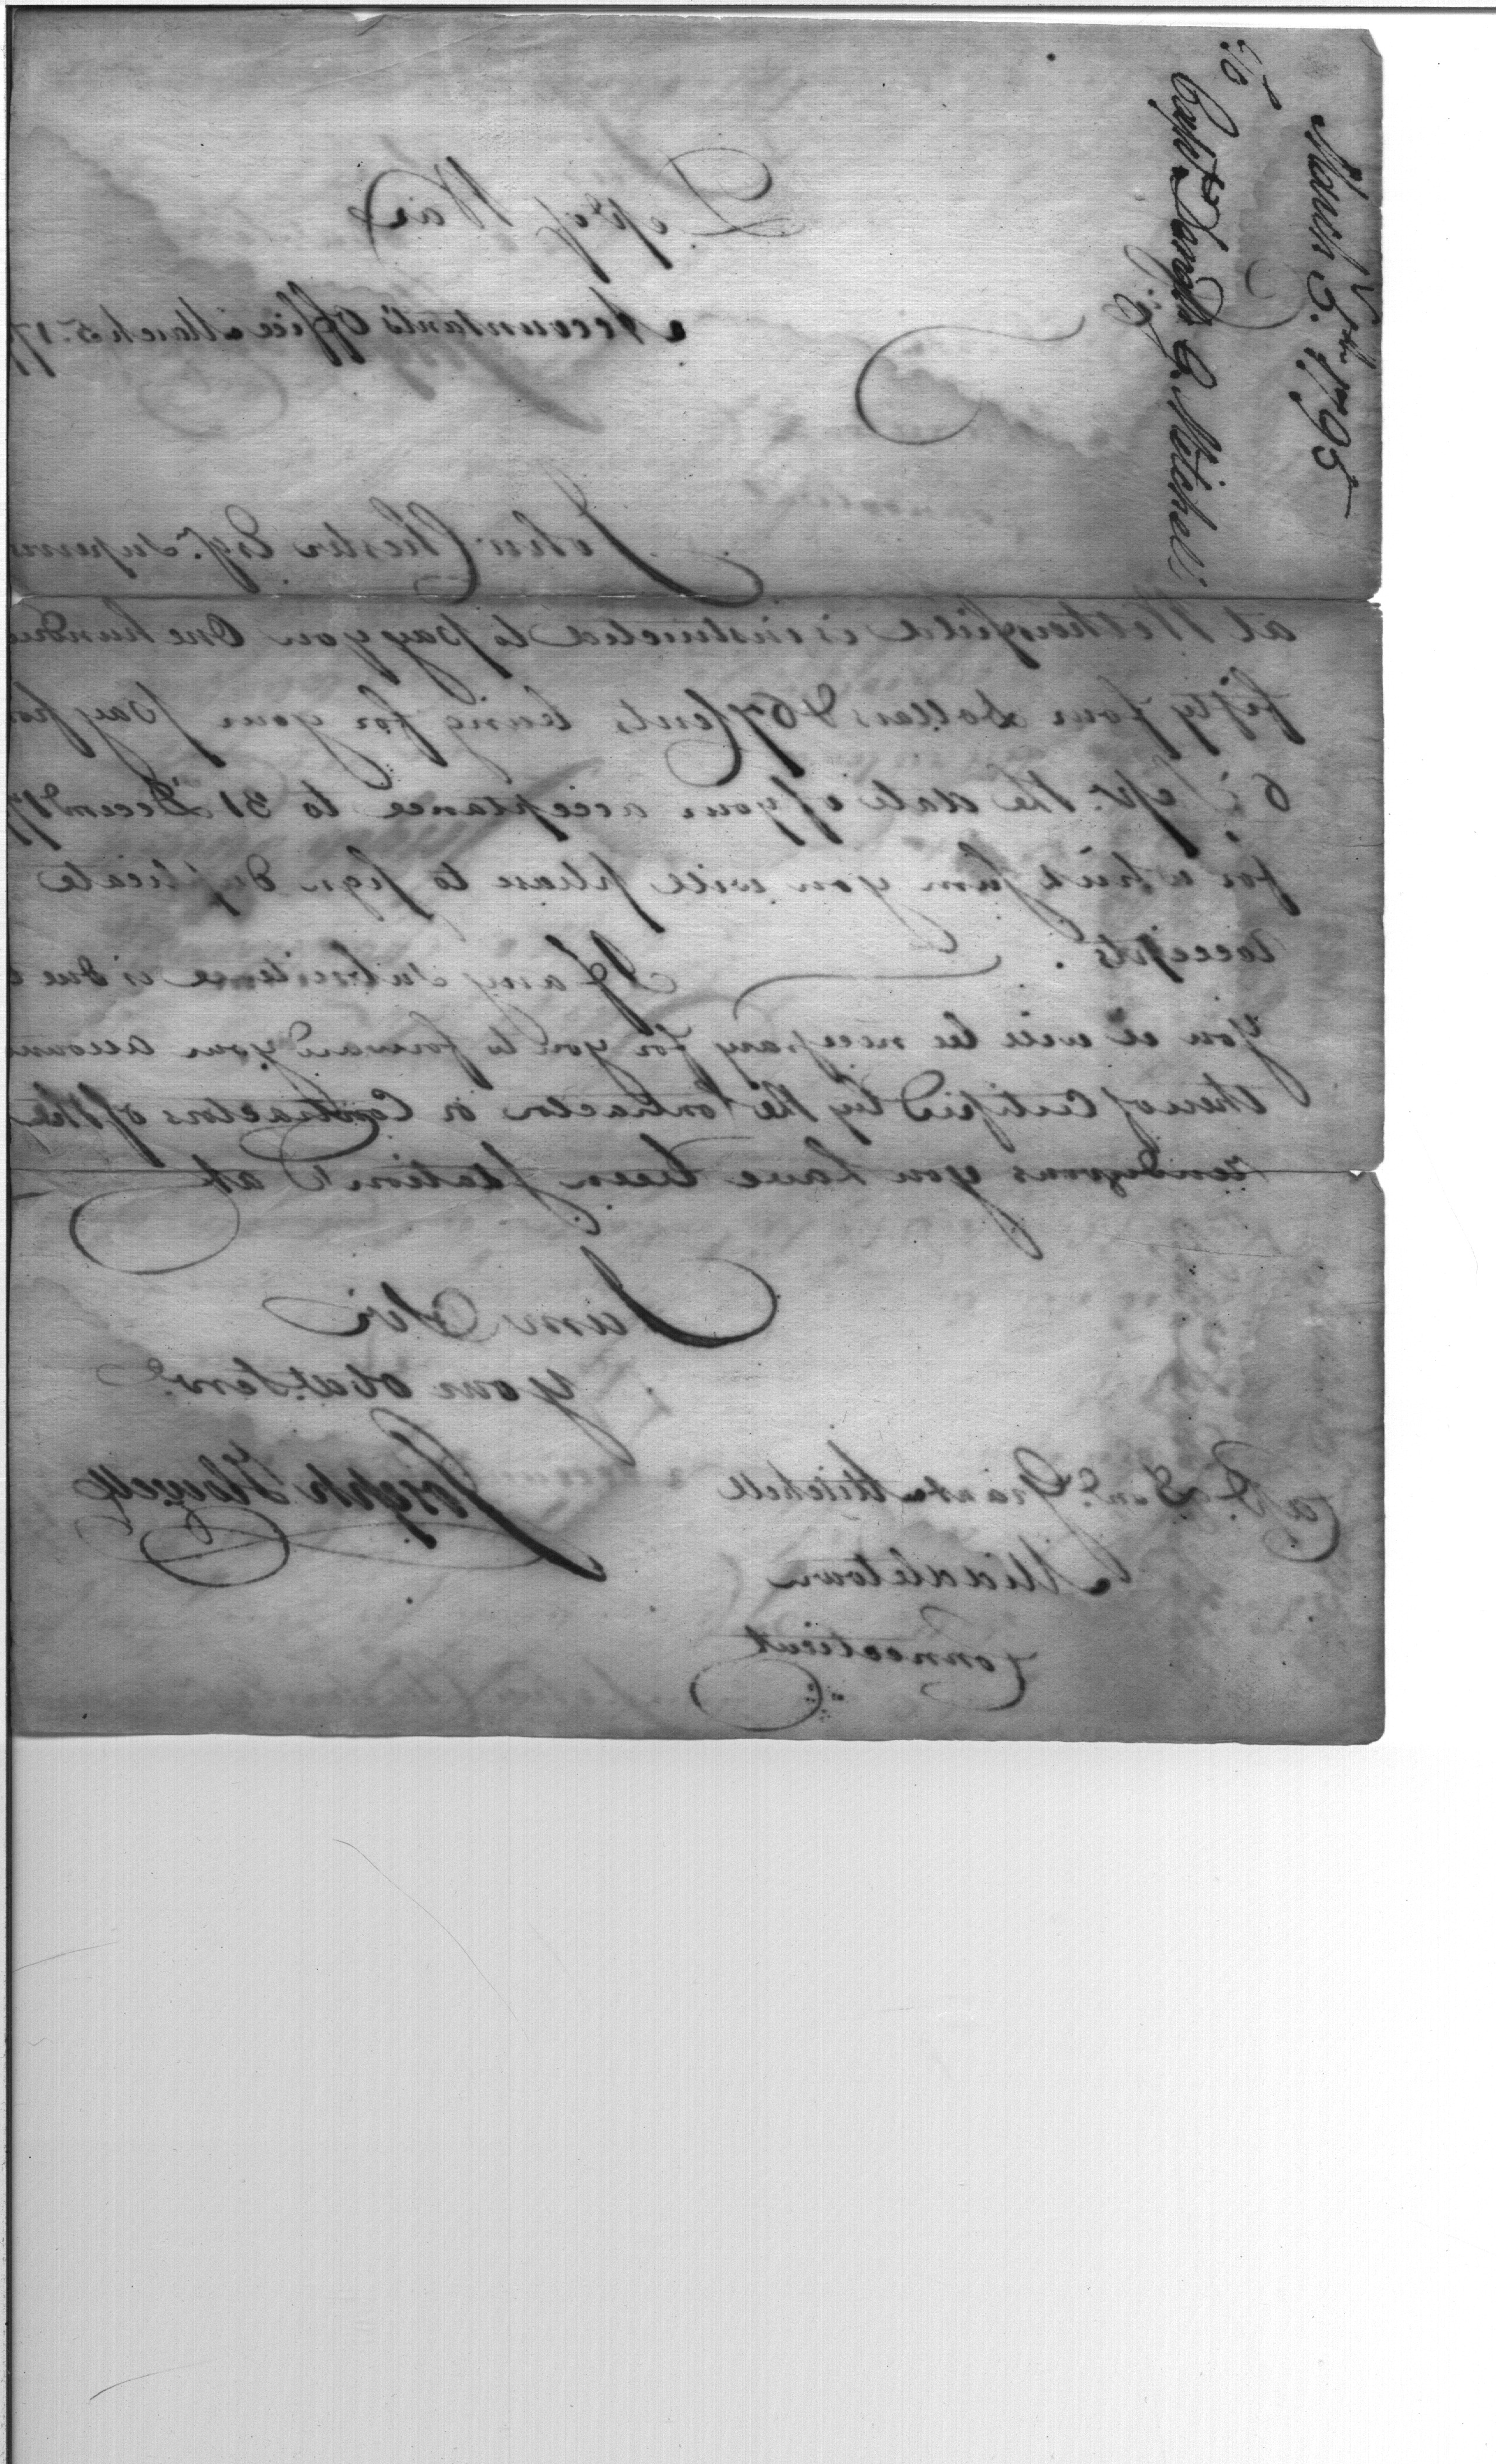 March 5th 1795
To
Capt. Donald G. Mitchell
Dep of War
Accountants Office March 5. 17
John Chester Esqr.
at Wethersfield is instructed to pay you One hundred
fifty four dollars & 67 Cents being for your pay
6 Sepr. the date of your acceptance to 31 Decemr 17
for which sum you will please to sign duplicate
receipts.
If any subsistence is due
you it will be necessary for you to forward your
thereof Certified by the Contractor or Contractors of the
rendezvous you have been stationd at
I am Sir
your obedt. Servt.
Joseph Howell
Capt. Grant Mitchell
Middletown
Connecticut